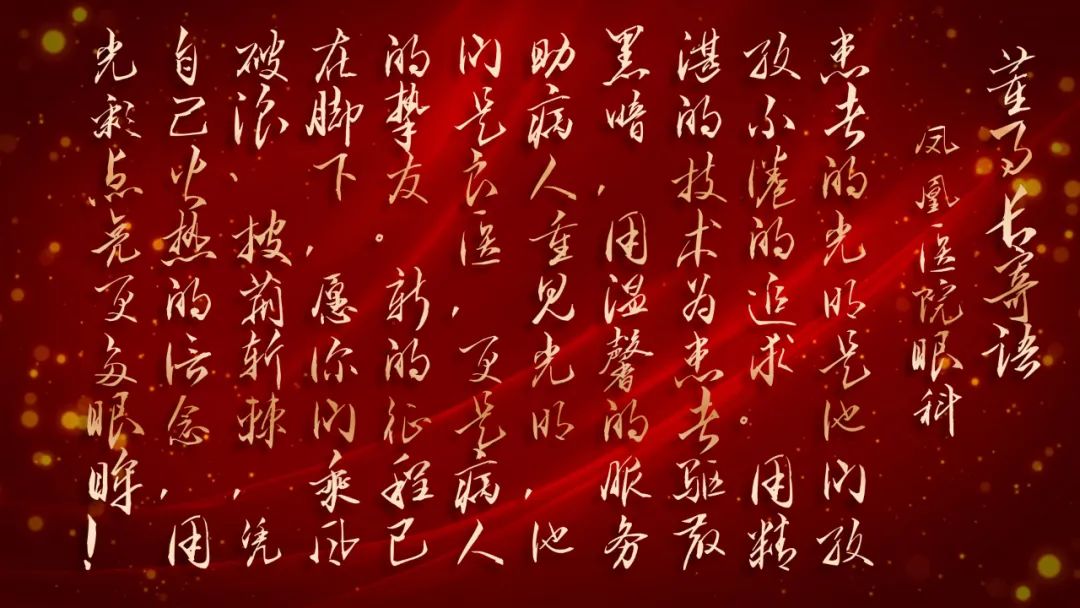 董事长寄语
凤凰医院眼科
患者的光明是他们孜
孜不倦的追求。用精
湛的技术为患者驱散
黑暗，用温馨的服务
助病人重见光明，他
们是良医，更是病人
的挚友。新的征程已
在脚下，愿你们乘风
破浪、披荆斩棘，凭
自己火热的信念，用
光彩点亮更多眼眸！